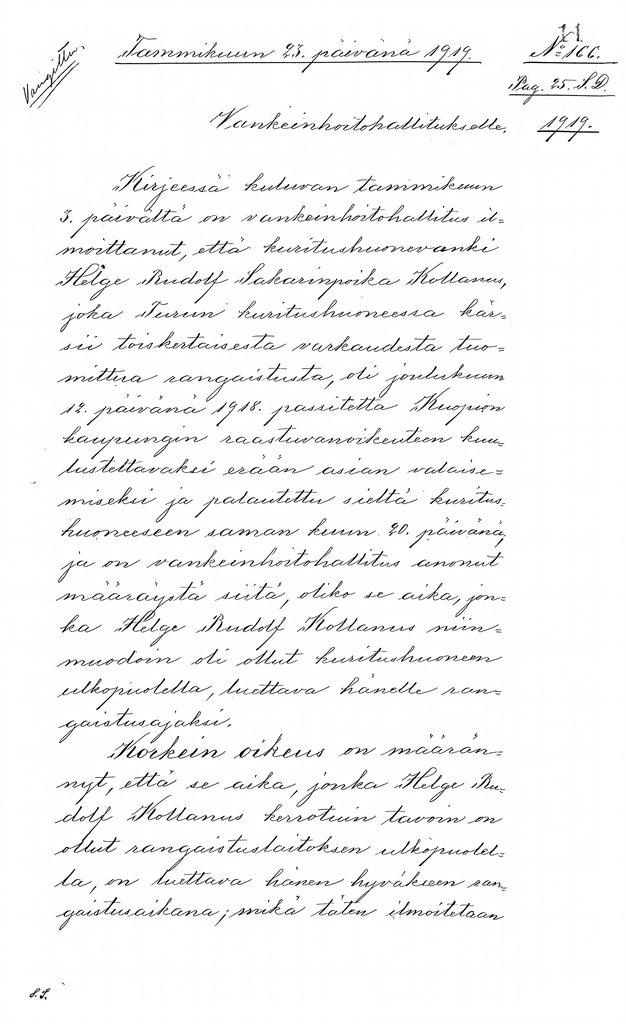 11
Vangittu.
Tammikuun 23. päivänä 1919.
No 166.
Pag. 25. S. D.
1919.
Vankeinhoitohallitukselle.
Kirjeessä kuluvan tammikuun
3. päivältä on vankeinhoitohallitus il=
moittanut, että kuritushuonevanki
Helge Rudolf Sakarinpoika Kollanus,
joka Turun kuritushuoneessa kär=
sii toiskertaisesta varkaudesta tuo=
mittua rangaistusta, oli joulukuun
12. päivänä 1918. passitettu Kuopion
kaupungin raastuvanoikeuteen kuu=
lustettavaksi erään asian valaise=
miseksi ja palautettu sieltä kuritus=
huoneeseen saman kuun 20. päivänä,
ja on vankeinhoitohallitus anonut
määräystä siitä, oliko se aika, jon=
ka Helge Rudolf Kollanus niin=
muodoin oli ollut kuritushuoneen
ulkopuolella, luettava hänelle ran=
gaistusajaksi.
Korkein oikeus on määrän=
nyt, että se aika, jonka Helge Ru=
dolf Kollanus kerrotuin tavoin on
ollut rangaistuslaitoksen ulkopuolel=
la, on luettava hänen hyväkseen ran=
gaistusaikana; mikä täten ilmoitetaan
S.S.